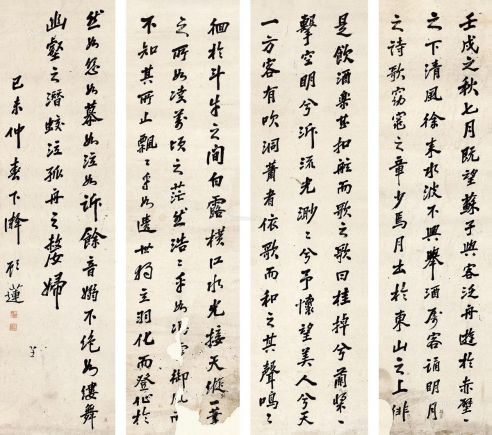 壬戌之秋七月既望蘇子與客泛舟遊於赤壁
之下清風徐來水波不興舉酒屬客誦明月
之詩歌窈窕之章少焉月出於東山之上徘
是飲酒樂甚扣舷而歌之歌曰桂棹兮蘭槳
擊空明兮泝流光渺〻兮予懷望美人兮天
一方客有吹洞簫者依歌而和之其聲嗚〻
徊於斗牛之間白露橫江水光接天縱一葦
之所如凌萬頃之茫然浩〻乎如馮御風而
不知其所止飄〻乎如遺世獨立羽化而登仙於
然如怨如慕如泣如訴餘音嫋不絕如縷舞
幽壑之潛蛟泣孤舟之嫠婦
己未仲春下澣 顧蓮